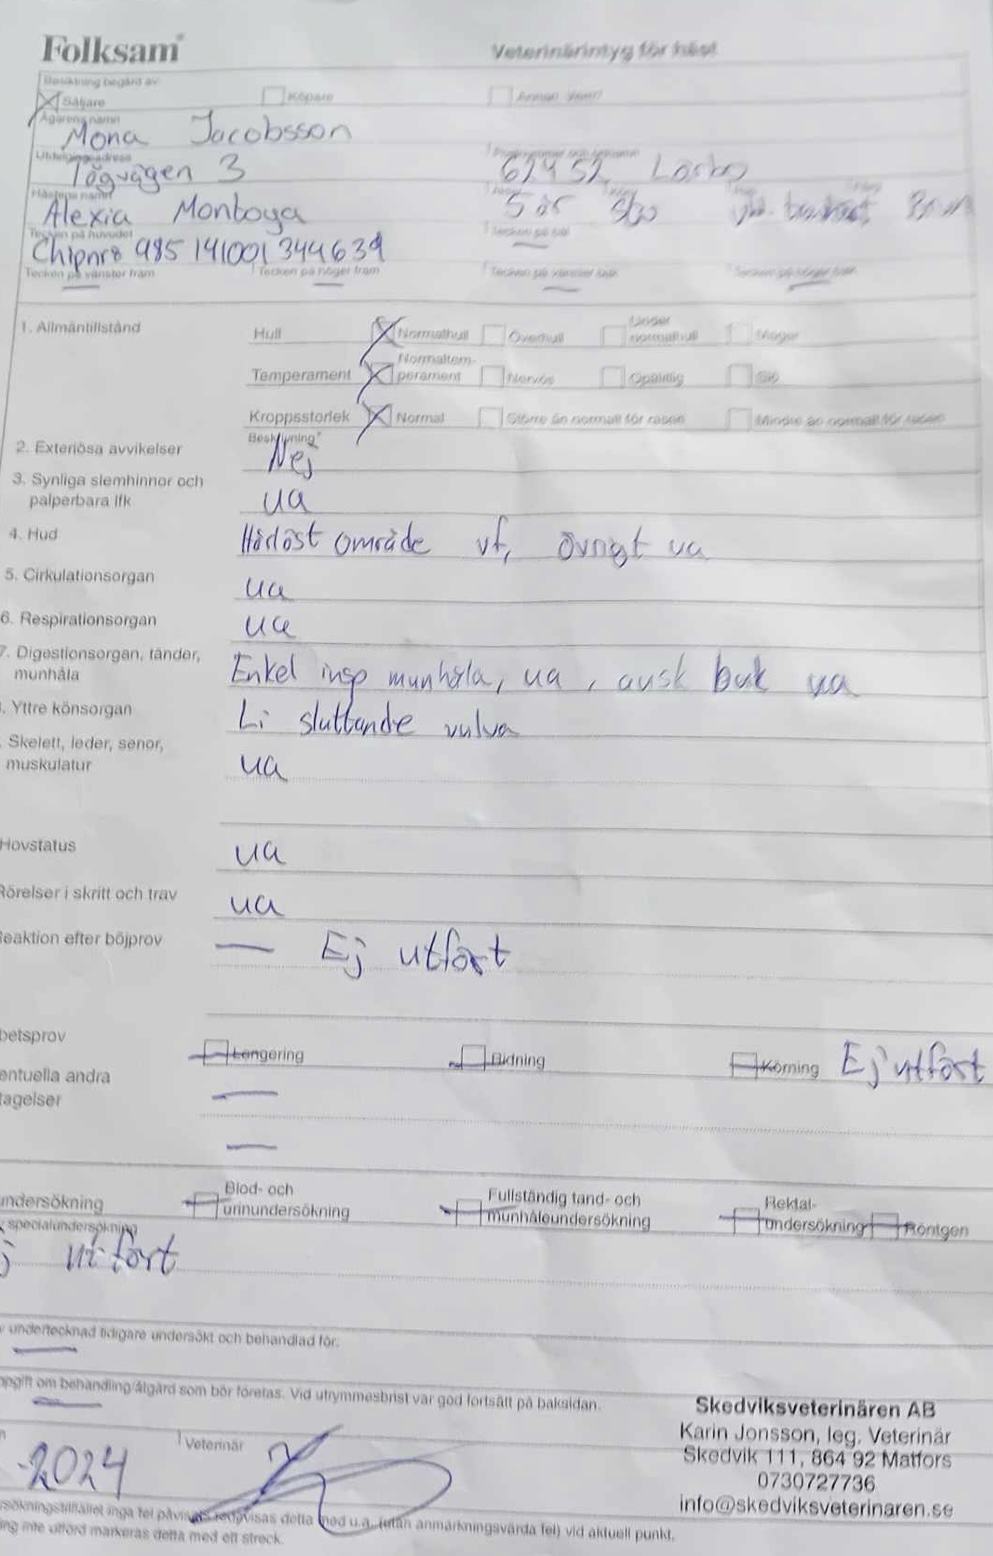 Folksam
Veterinärintyg för häst
Besiktning begärd av
Säljare Köpare Annan
Ägarens namn
Mona Jacobsson
Utdelningsadress
Tögvägen 3 62452 Lärbro
Hästens namn
Alexia Montoya 5 år Sto Brun
Tecken på huvudet
Chipnr8 985 141001344639
Tecken på vänster fram Tecken på höger fram Tecken på vänster bak Tecken på höger bak
1. Allmäntillstånd Hull Normalhull Överhull Under normalhull Mager
Temperament Normaltemperament Nervös Opålitlig Slö
Kroppsstorlek Normal Större än normalt för rasen Mindre än normalt för rasen
Beskrivning
2. Exteriösa avvikelser Nej
3. Synliga slemhinnor och
palperbara lfk ua
4. Hud Hårlöst område vf, övrigt ua
5. Cirkulationsorgan ua
6. Respirationsorgan ua
7. Digestionsorgan, tänder,
munhåla Enkel insp munhåla, ua, ausk buk ua
. Yttre könsorgan Li sluttande vulva
. Skelett, leder, senor,
muskulatur ua
Hovstatus ua
Rörelser i skritt och trav ua
Reaktion efter böjprov — Ej utfört
betsprov Longering Ridning Körning Ej utfört
entuella andra
tagelser —
—
ndersökning Blod- och urinundersökning Fullständig tand- och munhåleundersökning Rektalundersökning Röntgen
specialundersökning
j utfört
undertecknad tidigare undersökt och behandlad för.
—
ppgift om behandling/åtgärd som bör företas. Vid utrymmesbrist var god fortsätt på baksidan.
—
Skedviksveterinären AB
Karin Jonsson, leg. Veterinär
Skedvik 111, 864 92 Matfors
0730727736
info@skedviksveterinaren.se
Veterinär
-2024
rsökningstillfället inga fel påvisats redovisas detta med u.a. (utan anmärkningsvärda fel) vid aktuell punkt.
ing inte utförd markeras detta med ett streck.